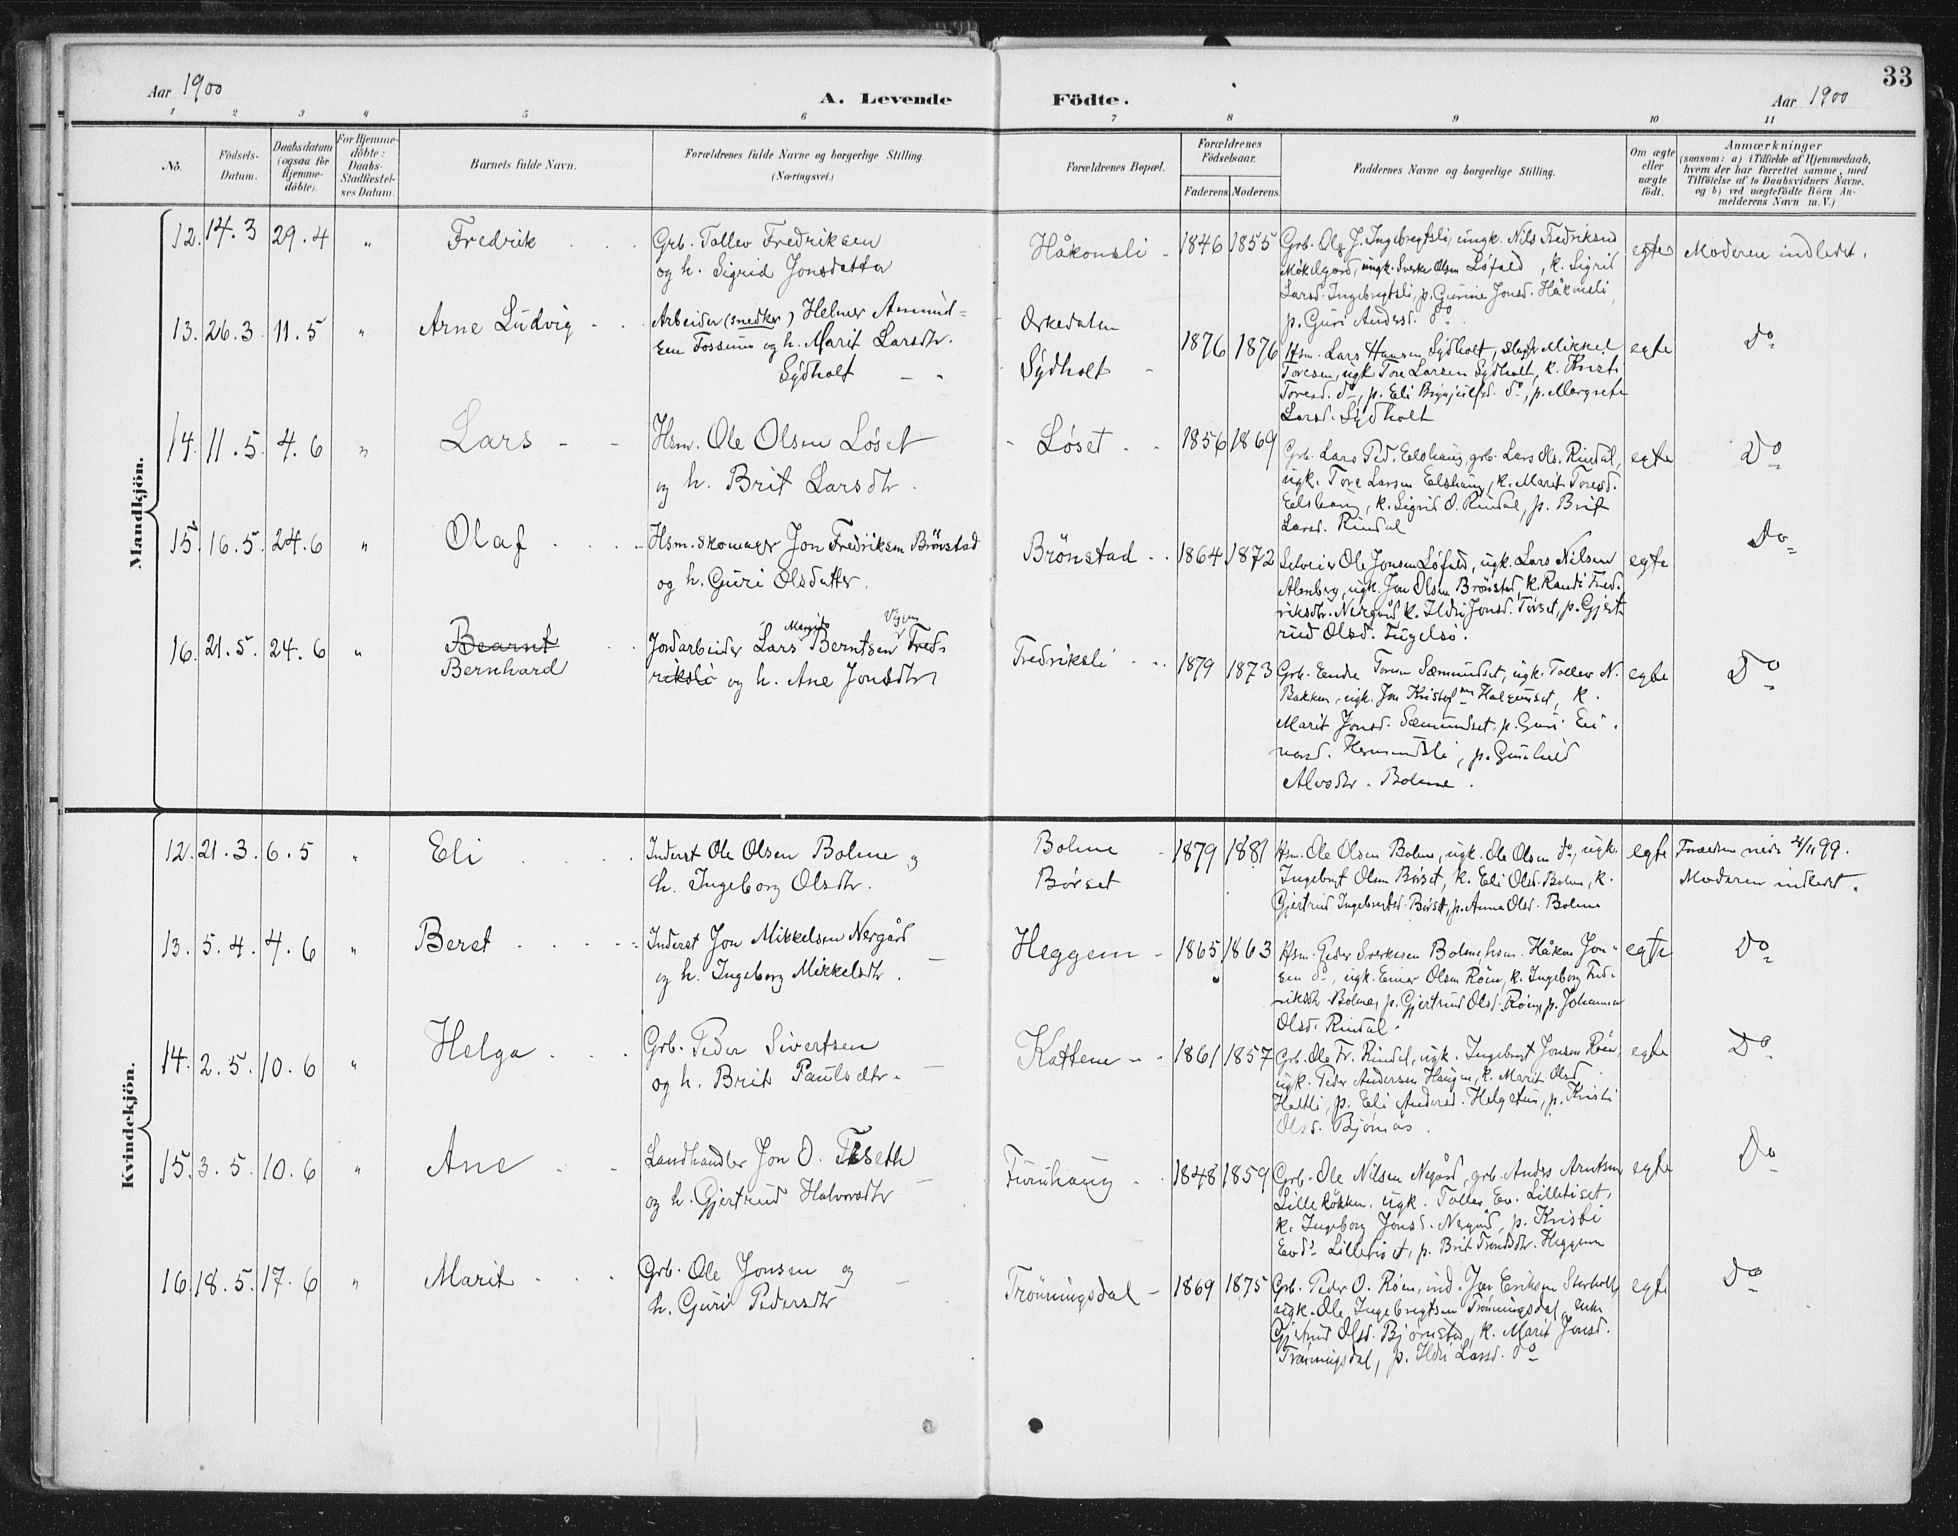 33
Aar 1900
A. Levende Födte.
Aar 1900
1 2 3 4 5 6 7 8 9 10 11
No.
Födsels-
Datum.
Daabsdatum
(ogsaa for
Hjemme-
döbte).
For Hjemme-
döbte:
Daabs-
Stadfæstel-
ses Datum.
Barnets fulde Navn.
Forældrenes fulde Navne og borgerlige Stilling.
(Næringsvei.)
Forældrenes Bopæl.
Forældrenes
Födselsaar.
Faderens Moderens.
Faddernes Navne og borgerlige Stilling.
Om ægte
eller
uægte
födt.
Anmærkninger
(saasom: a) i Tilfælde af Hjemmedaab,
hvem der har forrettet samme, med
Tilföielse af to Daabsvidners Navne,
og b) ved uægtefödte Börn An-
melderens Navn m. V.)
Mandkjön.
12. 14.3 29.4 " Fredrik
Grb. Tollev Fredriksen
og h. Sigrid Jonsdatter
Håkonsli 1846 1855
Grb. Ole J. Ingebregtsli, ungk. Nils Fredriksen
Mökelgård, ungk. Sverke Olsen Løfald, k. Sigrid
Larsd. Ingebregtsli, p. Gurine Jonsd. Håkonsli,
p. Guri Andersd. do
egte Moderen indledet.
13. 26.3 11.5 " Arne Ludvig
Arbeider (snedker) Helmer Amund-
sen Fossum og h. Marit Larsdtr.
Sydholt
Orkedalen
Sydholt
1876 1876
Hsm. Lars Hansen Sydholt, Mikkel
Toresen, ugk. Tore Larsen Sydholt, k. Kristi
Toresd. do, p. Eli Brynjulfsd. do, p. Margrete
Larsd. Sydholt
egte Do
14. 11.5 4.6 " Lars
Hsm. Ole Olsen Löset
og h. Brit Larsdtr.
Løset 1856 1869
Grb. Lars Ped. Eelshaug, grb. Lars Ols. Rindal,
ugk. Tore Larsen Eelshaug, k. Marit Toresd.
Eelshaug, k. Sigrid O. Rindal, p. Brit
Larsd. Rindal
egte Do
15. 16.5 24.6 " Olaf
Hsm. skomager Jon Fredriksen Brönstad
og h. Guri Olsdatter.
Brönstad 1864 1872
Selveier Ole Jonsen Løfald, ugk. Lars Nilsen
Alenberg, ugk. Jon Olsen Brönstad, k. Randi Fred-
riksdtr. Nergård k. Ildri Jonsd. Törset, p. Gjert-
rud Olsd. Fugelsö.
egte Do
16. 21.5 24.6 " Bearnt
Bernhard
Jordarbeider Lars Berntsen Fred-
rikslí og h. Ane Jonsdtr.
Fredriksli 1879 1873
Grb. Eendre Toresen Sæmundset, ugk. Tollev N.
Bakken, ugk. Jon Kristofersen Halgunset, k.
Marit Jonsd. Sæmundset, p. Guri Ei-
narsd. Hermundsli, p. Gunhild
Alvsdtr. Bolme.
egte Do
Kvindekjön.
12. 21.3. 6.5 " Eli
Inderst Ole Olsen Bolme og
h. Ingeborg Olsdtr.
Bolme
Börset
1879 1881
Hsm. Ole Olsen Bolme, ugk. Ole Olsen do, ugk.
Ingebrigt Olsen Börset, k. Eli Olsd. Bolme, k.
Gjertrud Ingebrigtsd. Börset, p. Anna Olsd. Bolme
egte
Moderen indledet.
13. 5.4. 4.6 " Beret
Inderst Jon Mikkelsen Nergård
og h. Ingeborg Mikkelsdtr.
Heggem 1865 1863
Hsm. Peder Sverkesen Bolme, hsm. Håkon Jon-
sen do, ugk. Einar Olsen Röen, k. Ingeborg Fred-
riksdtr Bolme, p. Gjertrud Olsd. Röen, p. Johanna
Olsd. Rindal.
egte Do
14. 2.5. 10.6 " Helga
Grb. Peder Sivertsen
og h. Brit Paulsdtr.
Kattem 1861 1857
Grb. Ole Fr. Rindal, ugk. Ingebrigt Jonsen Röen,
ugk. Peder Andersen Haugen, k. Marit Olsd.
Holtli, p. Eli Andersd. Helgetun, p. Kristi
Olsd. Bjørnås.
egte Do
15. 3.5. 10.6 " Ane
Landhandler Jon O. Tiseth
og h. Gjertrud Halvorsdtr
Furuhaug 1848 1859
Grb. Ole Nilsen Negård, grb. Anders Arntsen
Lilleløkken, ugk. Tollev Ev. Lilletiset,
k. Ingeborg Jonsd. Negård, p. Kristi
Evd. Lilletiset, p. Brit Trondsdtr. Heggem
egte Do
16. 18.5. 17.6 " Marit
Grb. Ole Jonsen og
h. Guri Pedersdtr
Trönningsdal 1869 1875
Grb. Peder O. Röen, ind. Jon Eriksen Storholt,
ugk. Ole Ingebrigtsen Trönningsdal, enke
Gjertrud Olsd. Bjørnstad, k. Marit Jonsd.
Trönningsdal, p. Ildri Larsd. do
egte Do